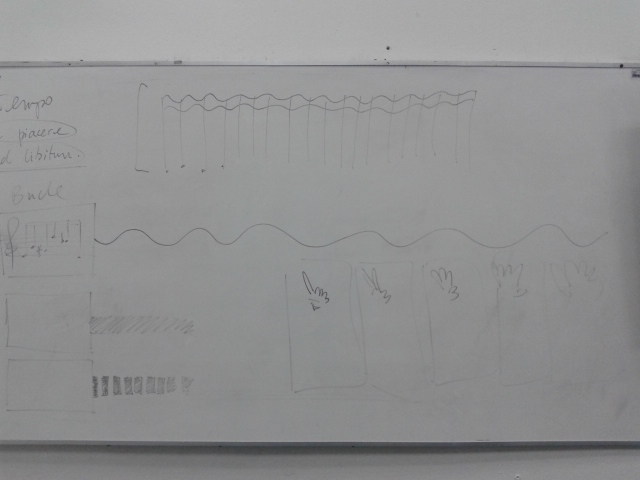 Tempo
piacere
ad libitum.
Bucle